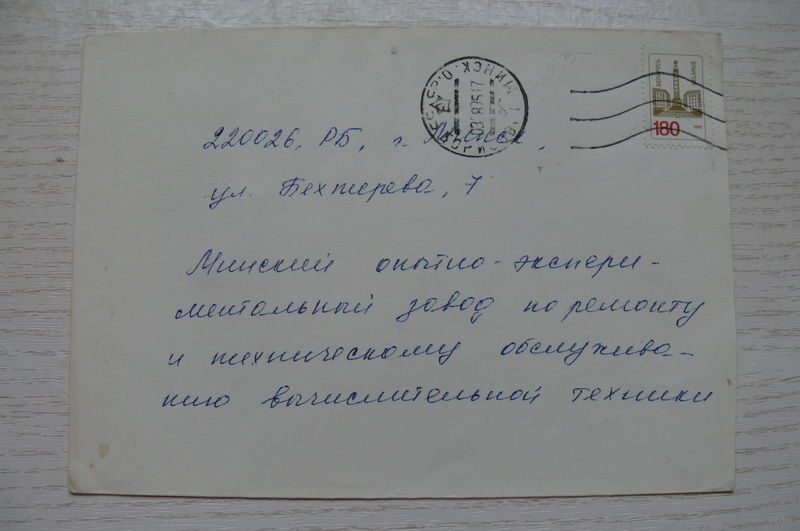 МИНСК
БЕЛАРУСЬ
BELARUS
180
220026, РБ, г. Минск,
ул. Бехтерева, 7
Минский опытно-экспери-
ментальный завод по ремонту
и техническому обслужива-
нию вычислительной техники